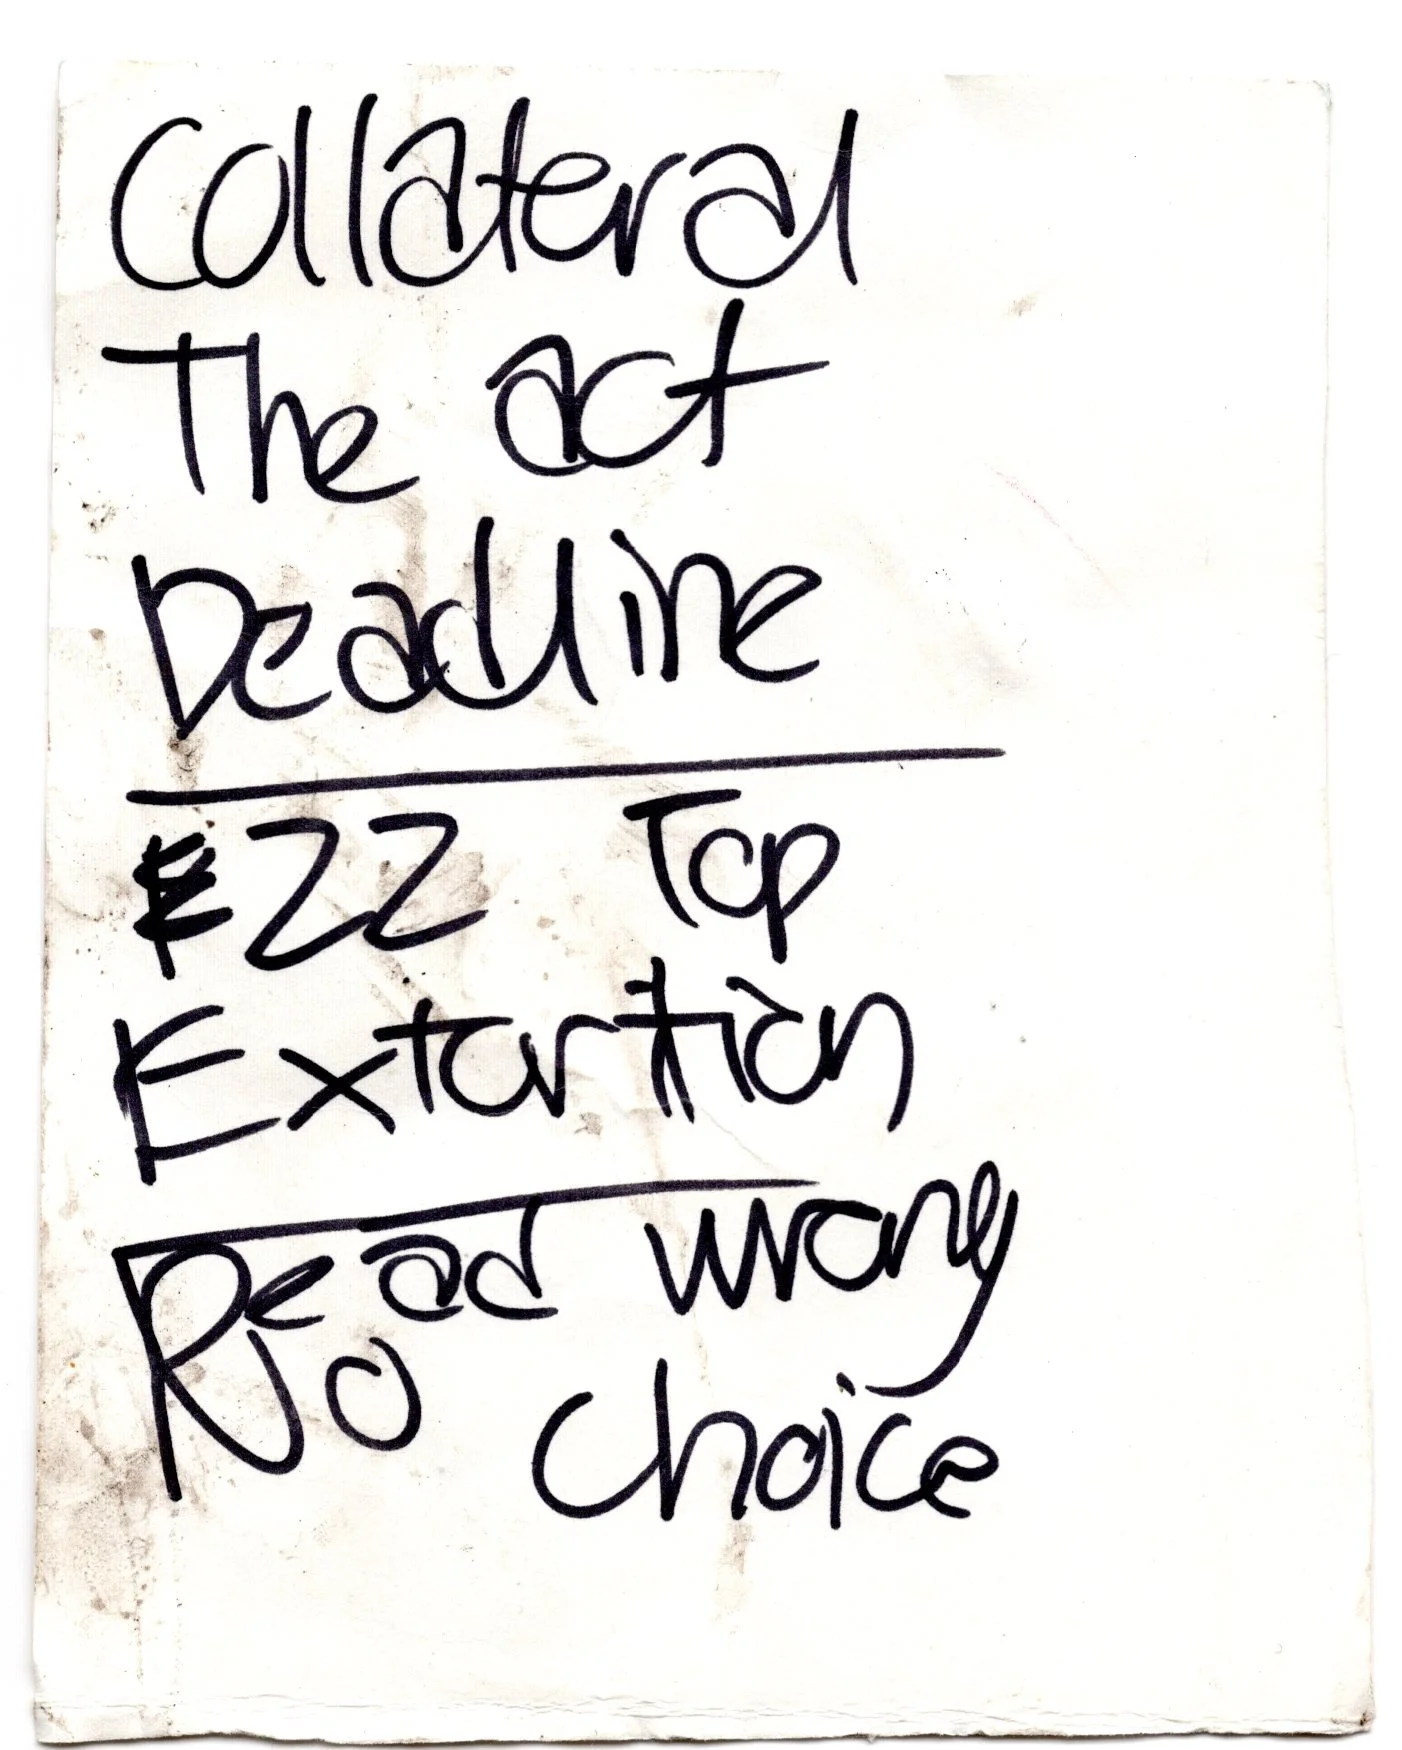 Collateral
The act
Deadline
E22 Top
Extortion
Read wrong
No choice